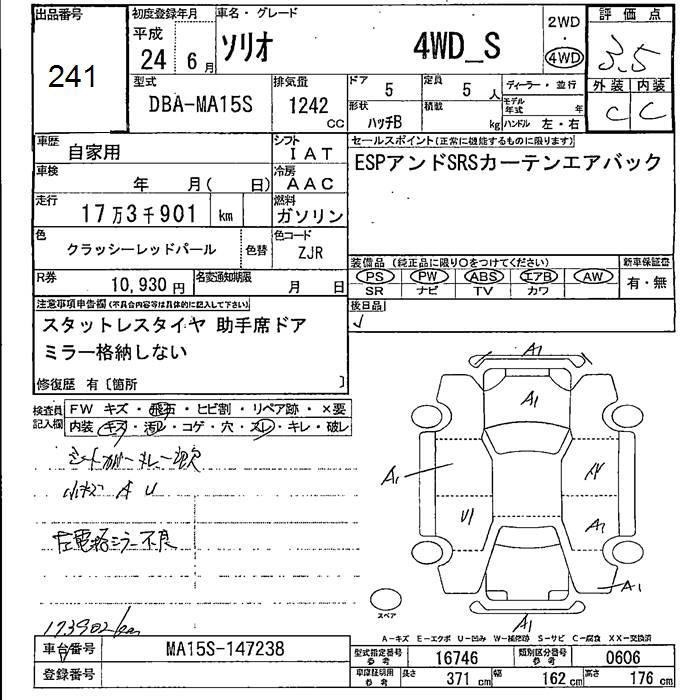 出品番号 初度登録年月 車名・グレード 評価点
平成 2WD
241 24 6月 ソリオ 4WD_S 4WD 3.5
型式 排気量 ドア 5 定員 5 人 ディーラー・並行 外装 内装
DBA-MA15S 1242 CC 形状 ハッチB 積載 kg モデル年式 年 C C
ハンドル 左・右
車歴 自家用 シフト IAT セールスポイント(正常に機能するものに限ります)
車検 年 月( 日) 冷房 AAC ESPアンドSRSカーテンエアバック
走行 17万3千901 km 燃料 ガソリン
色 クラッシーレッドパール 色替 色コード ZJR
装備品(純正品に限り○をつけてください) 新車保証書
R券 10,930円 名変通知期限 月 日 PS PW ABS エアB AW 有・無
SR ナビ TV カワ
注意事項申告欄(不具合内容等は具体的に記入して下さい) 後日品
スタットレスタイヤ 助手席ドア
ミラー格納しない
修復歴 有〔箇所 〕
検査員記入欄 FW キズ・飛石・ヒビ割・リペア跡・×要
内装 キズ・汚レ・コゲ・穴・スレ・キレ・破レ
A1
A1
小キズ A U
A1
左電格ミラー不良
A1
A1
スペア A1
173902km
A-キズ E-エクボ U-凹み W-補修跡 S-サビ C-腐食 XX-交換済
車台番号 MA15S-147238 型式指定番号 参考 16746 類別区分番号 参考 0606
登録番号 車庫証明用 参考 長さ 371 cm 幅 162 cm 高さ 176 cm